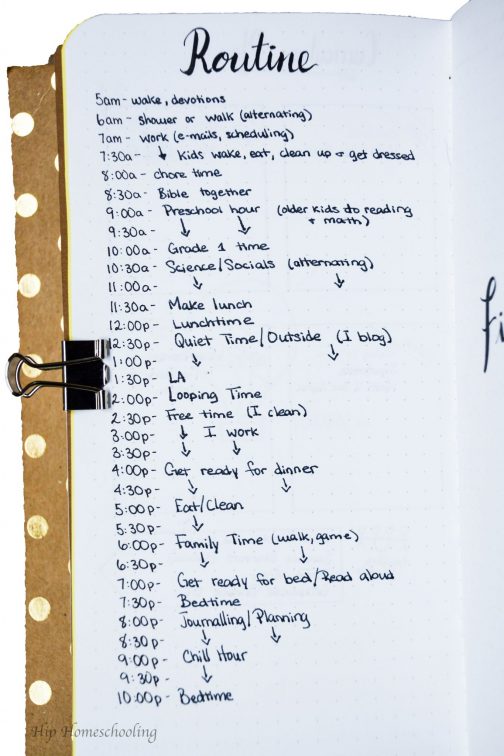 Routine
5am - wake, devotions
6am - shower or walk (alternating)
7am - work (e-mails, scheduling)
7:30a - ↓ Kids wake, eat, clean up + get dressed
8:00a - chore time
8:30a - Bible together
9:00a - Preschool hour (older kids do reading
9:30a - ↓ ↓ + math)
10:00a - Grade 1 time
10:30a - Science/Socials (alternating)
11:00a - ↓ ↓
11:30a - Make lunch
12:00p - Lunchtime
12:30p - Quiet Time/Outside (I blog)
1:00p - ↓ ↓
1:30p - LA
2:00p - Looping Time
2:30p - Free time (I clean)
3:00p - ↓ I work
3:30p - ↓ ↓
4:00p - Get ready for dinner
4:30p - ↓ ↓
5:00p - Eat/Clean
5:30p - ↓
6:00p - Family Time (walk, game)
6:30p - ↓ ↓
7:00p - Get ready for bed/Read aloud
7:30p - Bedtime
8:00p - Journalling/Planning
8:30p - ↓ ↓
9:00p - Chill Hour
9:30p - ↓
10:00p - Bedtime
Hip Homeschooling